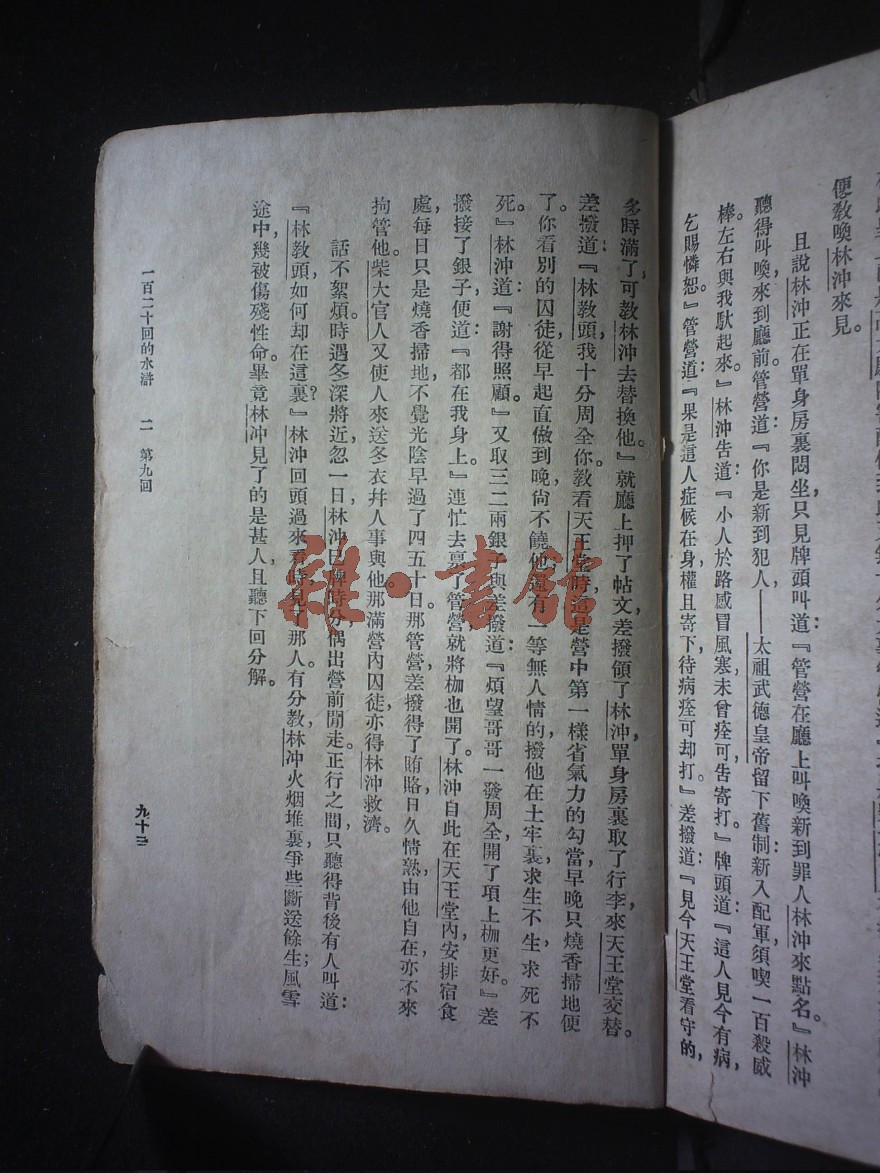 便教喚林冲來見。
且說林冲正在單身房裏悶坐，只見牌頭叫道：『管營在廳上叫喚新到罪人林冲來點名。』林冲
聽得叫喚，來到廳前。管營道：『你是新到犯人——太祖武德皇帝留下舊制：新入配軍須喫一百殺威
棒。左右與我馱起來。』林冲告道：『小人於路感冒風寒，未曾痊可，告寄打。』牌頭道：『這人見今有病，
乞賜憐恕。』管營道：『果是這人症候在身，權且寄下，待病痊可却打。』差撥道：『見今天王堂看守的，
多時滿了，可教林冲去替換他。』就廳上押了帖文，差撥領了林冲，單身房裏取了行李，來天王堂交替。
差撥道：『林教頭，我十分周全你。教看天王堂時，這是營中第一樣省氣力的勾當，早晚只燒香掃地便
了。你看別的囚徒，從早起直做到晚，尙不饒他；還有一等無人情的，撥他在土牢裏，求生不生，求死不
死。』林冲道：『謝得照顧。』又取三二兩銀子與差撥道：『煩望哥哥一發周全，開了項上枷更好。』差
撥接了銀子，便道：『都在我身上。』連忙去稟了管營，就將枷也開了。林冲自此在天王堂內安排宿食
處，每日只是燒香掃地，不覺光陰早過了四五十日。那管營差撥得了賄賂，日久情熟，由他自在，亦不來
拘管他。柴大官人又使人來送冬衣幷人事與他，那滿營內囚徒亦得林冲救濟。
話不絮煩。時遇冬深將近，忽一日，林冲巳牌時分偶出營前閒走。正行之間，只聽得背後有人叫道：
『林教頭，如何却在這裏？』林冲回頭過來看時，見了那人。有分教：林冲火烟堆裏，爭些斷送餘生；風雪
途中，幾被傷殘性命。畢竟林冲見了的是甚人，且聽下回分解。
一百二十回的水滸　二　第九回
九十三
雜·書館